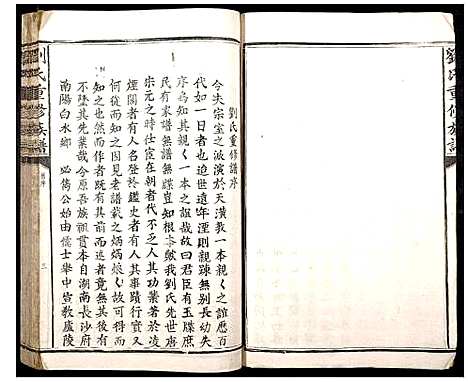 劉氏重修族譜
劉氏重修譜序
今夫宗室之派演於天潢教一本親親之誼歷百
代如一日者也迨世遠年湮則親踈無别長幼失
序烏知其親親一本之誼故曰臣有玉牒庶
民有家譜無譜無牒豈知根夲歟我劉氏先世唐
宋元之時仕宦在朝者代不乏人其功業著於
煙閣者有人名特登於鑑史者有人其事蹟行實又
何從而知之因見老譜載之炳炳烺烺故可得而
知之也然而作者既有其人述者竟無其後有
不墜其先業哉今原吾族祖貫本自湖南長沙府
南陽白水鄉 必儁公始由儒士舉中宣教廬陵
劉氏重修族譜
譜序
二